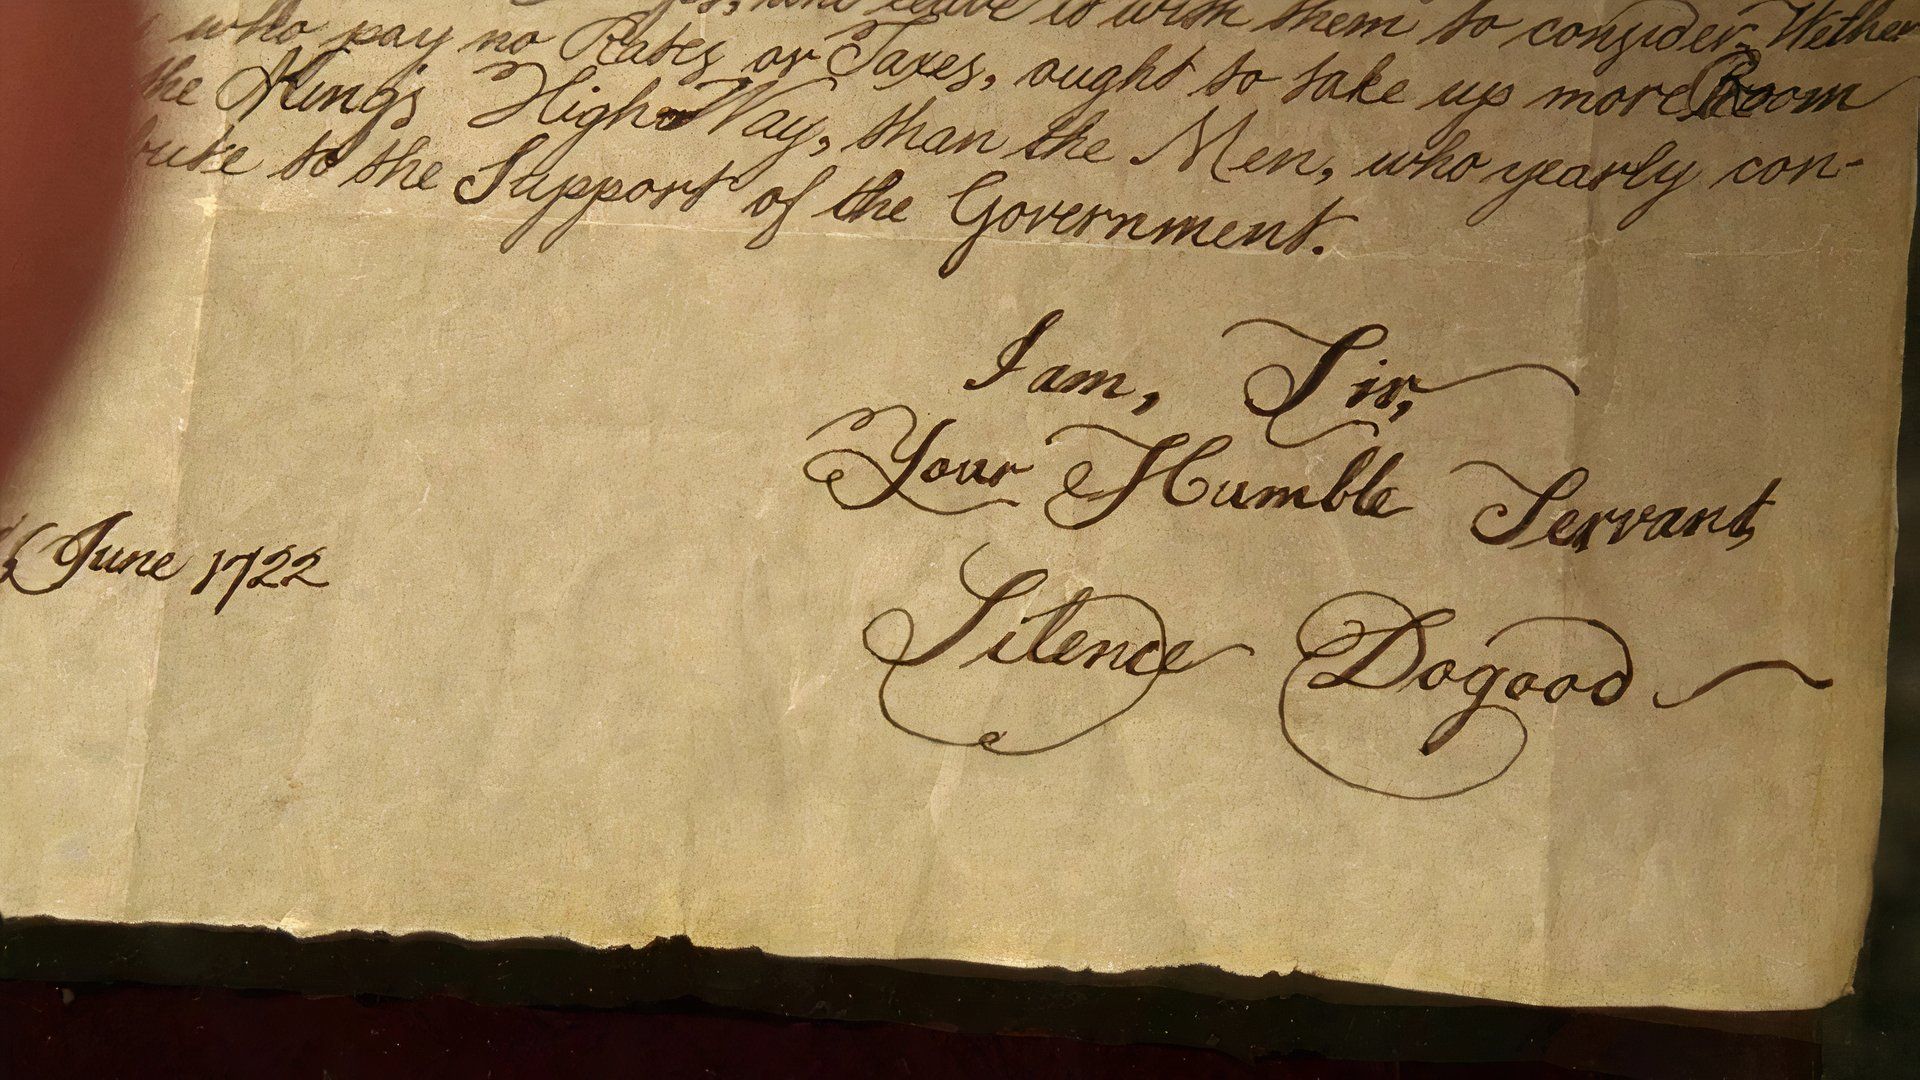 leave it with them to consider Wether
who pay no Rates or Taxes, ought to take up more Room
the King's High-Way, than the Men, who yearly con-
bute to the Support of the Government.
I am, Sir,
Your Humble Servant,
Silence Dogood
June 1722